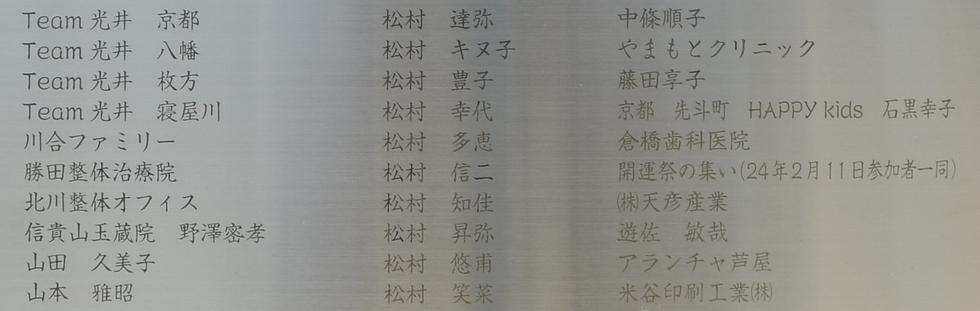 Team 光井　京都
Team 光井　八幡
Team 光井　枚方
Team 光井　寝屋川
川合ファミリー
勝田整体治療院
北川整体オフィス
信貴山玉蔵院　野澤密孝
山田　久美子
山本　雅昭
松村　達弥
松村　キヌ子
松村　豊子
松村　幸代
松村　多恵
松村　信二
松村　知佳
松村　昇弥
松村　悠甫
松村　笑菜
中條順子
やまもとクリニック
藤田享子
京都　先斗町　HAPPY kids　石黒幸子
倉橋歯科医院
開運祭の集い(24年2月11日参加者一同)
㈱天彦産業
遊佐　敏哉
アランチャ芦屋
米谷印刷工業㈱